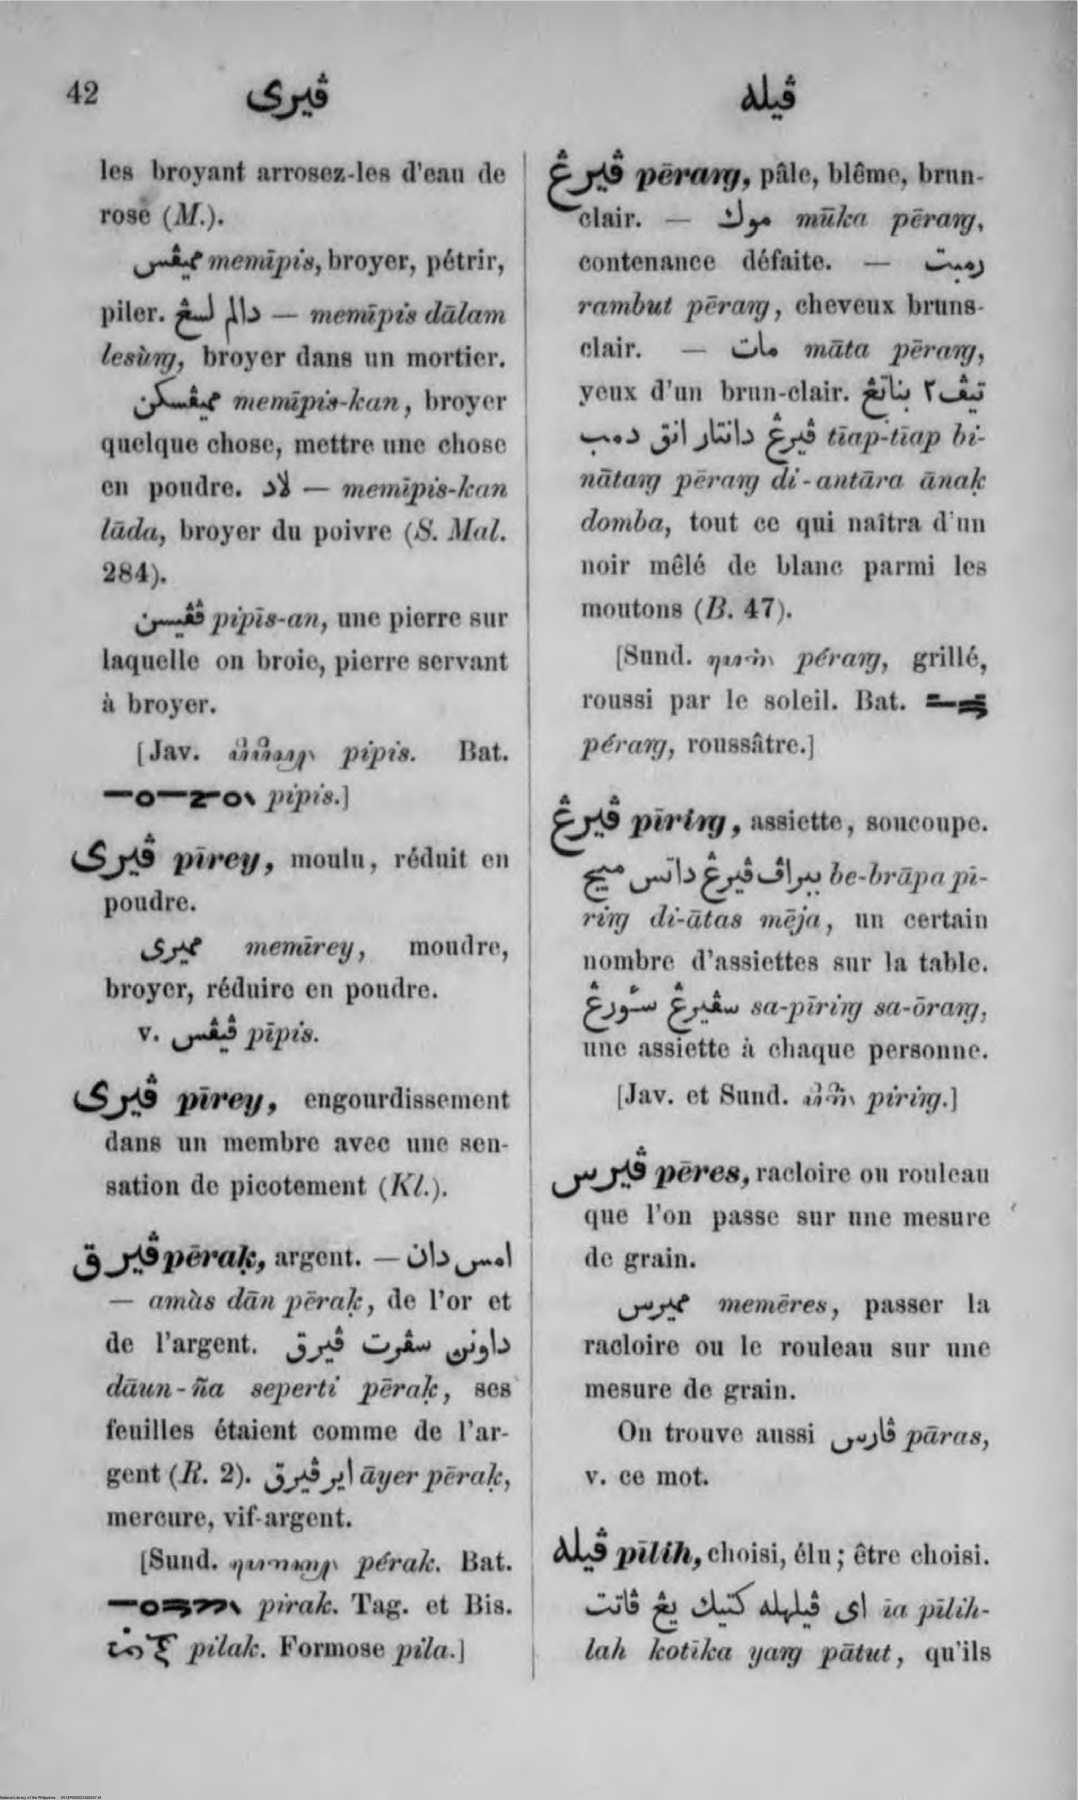 42 ڤيرى ڤيله
les broyant arrosez-les d'eau de
rose (M.).
مميڤس memīpis, broyer, pétrir,
piler. دالم لسڠ — memīpis dālam
lesùrg, broyer dans un mortier.
مميڤسكن memīpis-kan, broyer
quelque chose, mettre une chose
en poudre. لاد — memīpis-kan
lāda, broyer du poivre (S. Mal.
284).
ڤڤيسن pipīs-an, une pierre sur
laquelle on broie, pierre servant
à broyer.
[Jav. pipis. Bat.
pipis.]
ڤيرى pīrey, moulu, réduit en
poudre.
ميرى memīrey, moudre,
broyer, réduire en poudre.
v. ڤيڤس pīpis.
ڤيرى pīrey, engourdissement
dans un membre avec une sen-
sation de picotement (Kl.).
ڤيرق pēraḳ, argent. — امس دان
— amàs dān pēraḳ, de l'or et
de l'argent. داونن سڤرت ڤيرق
dāun-ña seperti pēraḳ, ses
feuilles étaient comme de l'ar-
gent (R. 2). ايرڤيرق āyer pēraḳ,
mercure, vif-argent.
[Sund. pérak. Bat.
pirak. Tag. et Bis.
pilak. Formose pila.]
ڤيرڠ pērarg, pâle, blême, brun-
clair. — موك mūka pērarg,
contenance défaite. — رمبت
rambut pērarg, cheveux bruns-
clair. — مات māta pērarg,
yeux d'un brun-clair. تيڤ٢ بناتڠ
ڤيرڠ دانتار انق دمب tīap-tīap bi-
nātarg pērarg di-antāra ānaḳ
domba, tout ce qui naîtra d'un
noir mêlé de blanc parmi les
moutons (B. 47).
[Sund. pérarg, grillé,
roussi par le soleil. Bat.
pérarg, roussâtre.]
ڤيرڠ pīrirg, assiette, soucoupe.
ببراڤ ڤيرڠ داتس ميج be-brāpa pī-
rirg di-ātas mēja, un certain
nombre d'assiettes sur la table.
سڤيرڠ سئورڠ sa-pīrirg sa-ōrarg,
une assiette à chaque personne.
[Jav. et Sund. pirirg.]
ڤيرس pēres, racloire ou rouleau
que l'on passe sur une mesure
de grain.
ميرس memēres, passer la
racloire ou le rouleau sur une
mesure de grain.
On trouve aussi ڤارس pāras,
v. ce mot.
ڤيله pīlih, choisi, élu; être choisi.
اى ڤيلهله كتيك يڠ ڤاتت īa pīlih-
lah kotīka yarg pātut, qu'ils